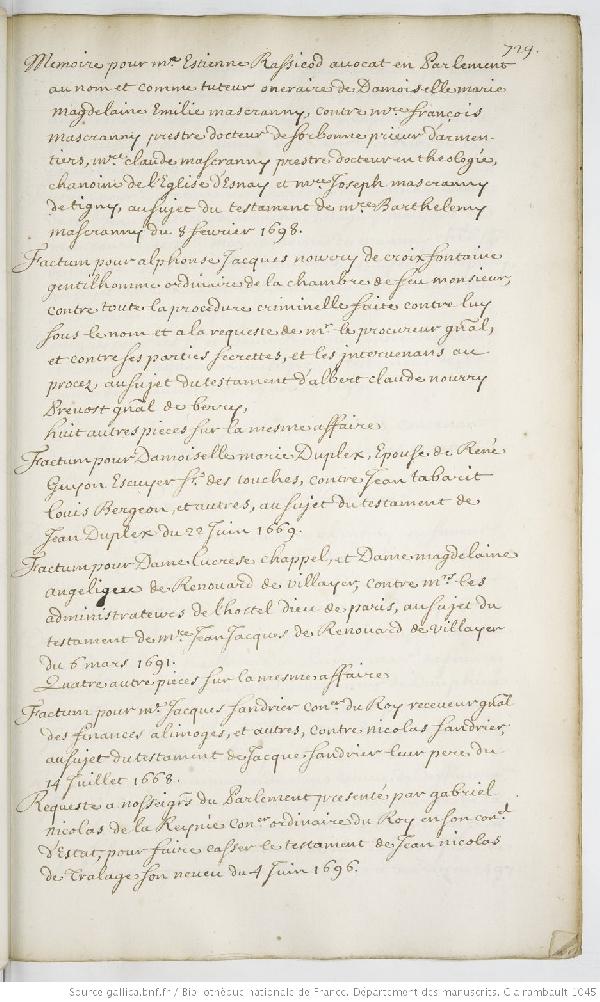 729.
Memoire pour mre Estienne Rassicod avocat en Parlement
au nom et comme tuteur oneraire de Damoiselle marie
magdelaine Emilie mascranny, contre mre françois
mascranny prestre docteur de sorbonne prieur d'armen-
tiers, mre claude mascranny prestre docteur en theologie,
chanoine de l'Eglise d'Esnay et mre Joseph mascranny
de tigny, au sujet du testament de mre Barthelemy
mascranny du 8 fevrier 1698.
Factum pour alphonse Jacques nourry de croixfontaine
gentilhomme ordinaire de la chambre de feu monsieur,
contre toute la procedure criminelle faite contre luy
sous le nom et a la requeste de mr le procureur gnal,
et contre ses parties secrettes, et les intervenans au
procez, au sujet du testament d'albert claude nourry
Prevost gnal de berry,
huit autres pieces sur la mesme affaire
Factum pour Damoiselle marie Duplex, Epouse de René
Guyon Escuyer sr des touches, contre Jean tabarit
Louis Bergeon, et autres, au sujet du testament de
Jean Duplex du 22 Juin 1669.
Factum pour Dame lucrese chappel, et Dame magdelaine
angelique de Renouard de villayer, contre mrs les
administrateurs de lhostel dieu de paris, au sujet du
testament de mre Jean Jacques de Renouard de villayer
du 6 mars 1691.
Quatre autre pieces sur la mesme affaire
Factum pour me Jacques sandrier coner du Roy receveur gnal
des finances a limoges, et autres, contre nicolas sandrier,
au sujet du testament de Jacque sandrier leur pere du
14 Juillet 1668.
Requeste a nosseigrs du Parlement presenté par gabriel
nicolas de la Reynie coner ordinaire du Roy en son conel
d'Estat, pour faire casser le testament de Jean nicolas
de Tralage son neveu du 4 Juin 1696.
Source gallica.bnf.fr / Bibliothèque nationale de France. Département des manuscrits. Clairambault 1045